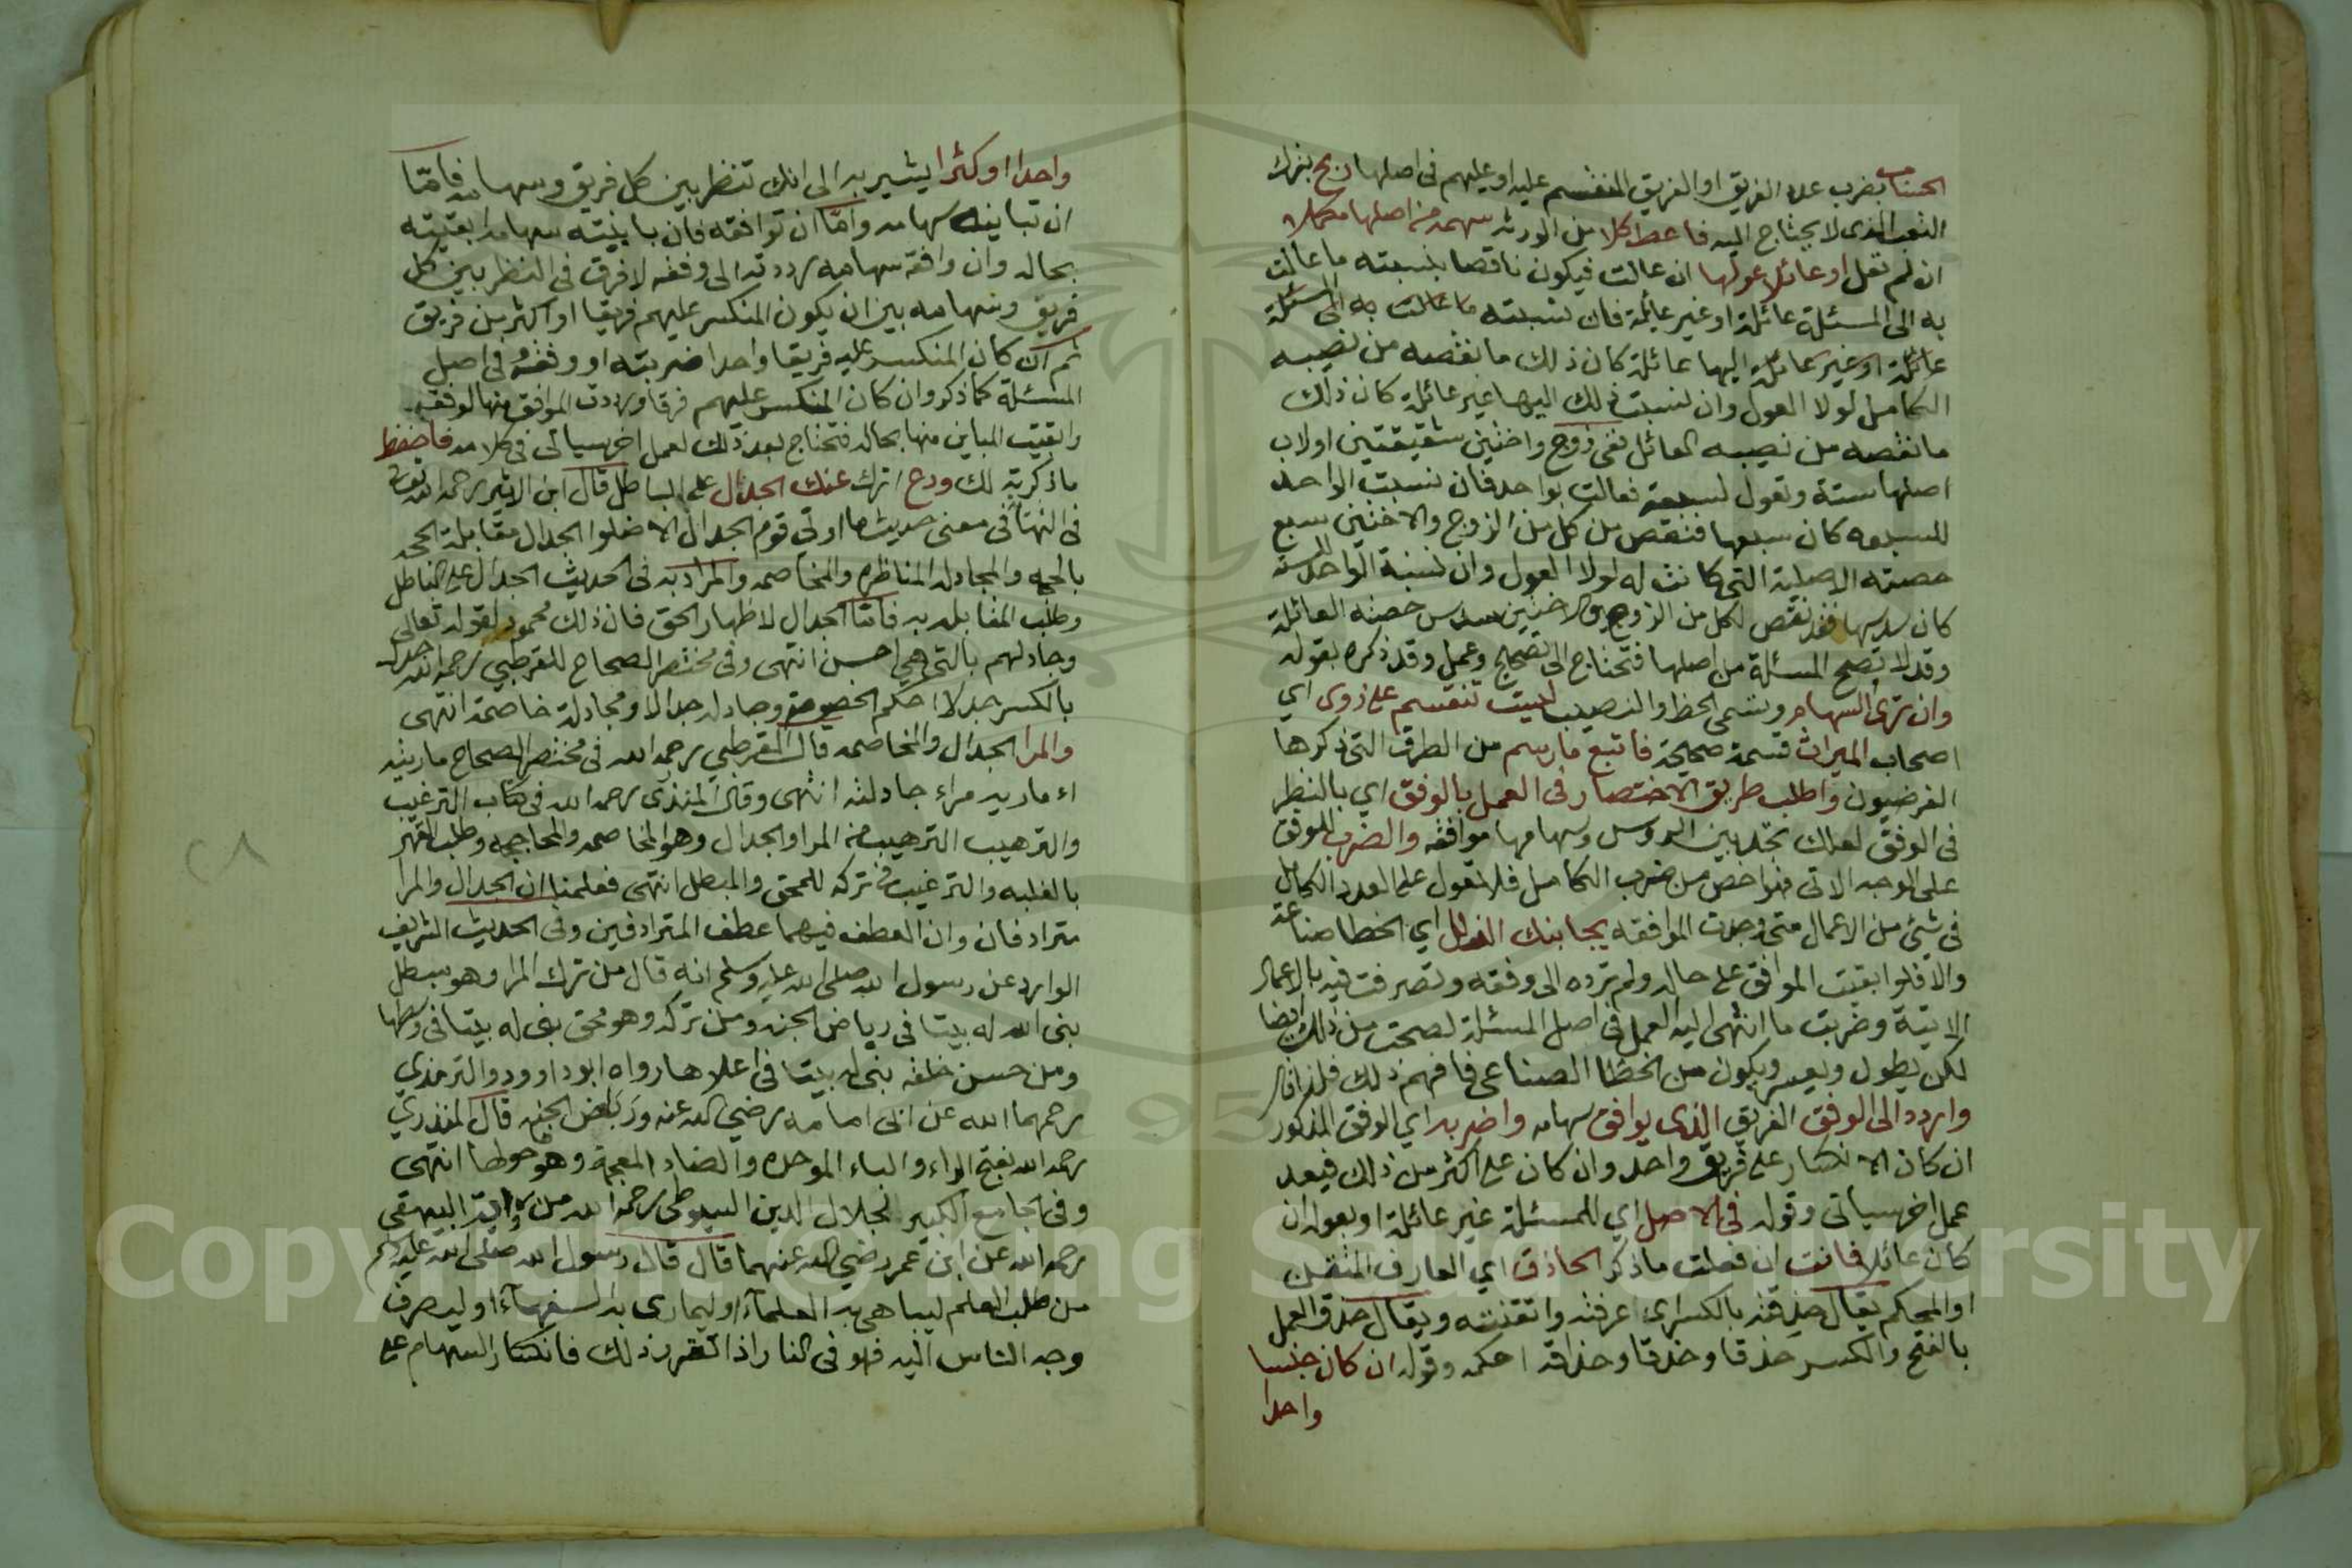 الحساب بضرب عدد الفريق او الفريق المنقسم عليه او عليهم في اصلها ربح بترك
التعب الذي لا يحتاج اليه فاعط كلا من الورثه سهمه من اصلها مكملا
ان لم تعل او عائلا عولها ان عالت فيكون ناقصا بنسبته ما عالت
به الى المسئلة عائلة او غير عائلة فان نسبته ما عالت به الى المسئلة
عائلة او غير عائلة اليها عائلة كان ذلك ما نقصه من نصيبه
الكامل لولا العول وان نسبت ذلك اليها غير عائلة كان ذلك
ما نقصه من نصيبه العائل ففي زوج واختين شقيقتين او لاب
اصلها ستة وتعول لسبعة فعالت بواحد فان نسبت الواحد
للسبعه كان سبعها فنقص من كل من الزوج والاختين سبع
حصته الاصلية التي كانت له لولا العول وان نسبة الواحد للستة
كان سدسها فقد نقص لكل من الزوج والاختين سدس حصته العائلة
وقد لا تصح المسئلة من اصلها فتحتاج الى تصحيح وعمل وقد ذكره بقوله
وان ترى السهام وتسمى الحظ والنصيب ليست تنقسم على ذوي اي
اصحاب الميراث قسمة صحيحة فاتبع ما رسم من الطرق التي ذكرها
الفرضيون واطلب طريق الاختصار في العمل بالوفق اي بالنظر
في الوفق لعلك تجد بين الروس وسهامها موافقه والضرب للوفق
على الوجه الاتي فهو اخص من ضرب الكامل فلا تعول على العدد الكامل
في شيئ من الاعمال متى وجدت الموافقه يجانبك الزلل اي الخطا صناعة
والا فلو ابقيت الموافق على حاله ولم ترده الى وفقه وتصرفت فيه بالاعمال
الاتية وضربت ما انتهى اليه العمل في اصل المسئلة لصحت من ذلك ايضا
لكن يطول ويعسر ويكون من الخطا الصناعي فافهم ذلك فلذا قال
واردد الى الوفق الفريق الذي يوافق سهامه واضربه اي الوفق المذكور
ان كان الانكسار على فريق واحد وان كان على اكثر من ذلك فبعد
عمل اخر سياتي وقوله في الاصل اي للمسئلة غير عائلة او بعولها ان
كان عائلا فانت ان فعلت ما ذكر الحاذق اي العارف المتقن
او المحكم يقال حذقته بالكسر اي اعرفته واتقنته ويقال حذق العمل
بالفتح والكسر حذقا وحذقا وحذاقه احكمه وقوله ان كان جنسا
واحدا
واحدا او كثرا يشير به الى انك تنظر بين كل فريق وسهامه فاما
ان تباينه سهامه واما ان توافقه فان باينته سهامه ابقيته
بحاله وان وافقه سهامه رددته الى وفقه لا فرق في النظر بين كل
فريق وسهامه بين ان يكون المنكسر عليهم فريقا او اكثر من فريق
ثم ان كان المنكسر عليه فريقا واحدا ضربته او وفقه في اصل
المسئلة كما ذكر وان كان المنكسر عليهم فرقا ورددت الموافق منها لوفقه
وابقيت المباين منها بحاله فتحتاج بعد ذلك لعمل اخر سياتي في كلامه فاحفظ
ما ذكرته لك ودع اترك عنك الجدال على الباطل قال ابن الاثير رحمه الله تعالى
في النهاية في معنى حديث ما اوتي قوم الجدال الا ضلوا الجدال مقابلة الحجه
بالحجه والمجادله المناظره والمخاصمه والمراد به في الحديث الجدال على الباطل
وطلب المغابله به فاما الجدال لاظهار الحق فان ذلك محمود لقوله تعالى
وجادلهم بالتي هي احسن انتهى وفي مختصر الصحاح للقرطبي رحمه الله جدل
بالكسر جدلا احكم الخصومة وجادله جدالا ومجادلة خاصمة انتهى
والمرا الجدال والمخاصمه قال القرطبي رحمه الله في مختصر الصحاح ماريته
اماريه مراء جادلته انتهى وقال المنذري رحمه الله في كتاب الترغيب
والترهيب الترهيب من المرا والجدال وهو المخاصمه والمحاججه وطلب القهر
بالغلبه والترغيب في تركه للمحق والمبطل انتهى فعلمنا ان الجدال والمرا
مترادفان وان العطف فيهما عطف المترادفين وفي الحديث الشريف
الوارد عن رسول الله صلى الله عليه وسلم انه قال من ترك المرا وهو مبطل
بنى الله له بيتا في رياض الجنه ومن تركه وهو محق بنى له بيتا في وسطها
ومن حسن خلقه بنى له بيتا في اعلاها رواه ابو داوود والترمذي
رحمهما الله عن ابي امامه رضي الله عنه وربض الجنه قال المنذري
رحمه الله بفتح الراء والباء الموحده والضاد المعجمة وهو حولها انتهى
وفي الجامع الكبير لجلال الدين السيوطي رحمه الله من رواية البيهقي
رحمه الله عن ابن عمر رضي الله عنهما قال قال رسول الله صلى الله عليه وسلم
من طلب العلم ليباهي به العلماء او ليماري به السفهاء او ليصرف
وجه الناس اليه فهو في النار اذا تقرر ذلك فانكسار السهام على
٢٨
Copyright © King Saud University
1957